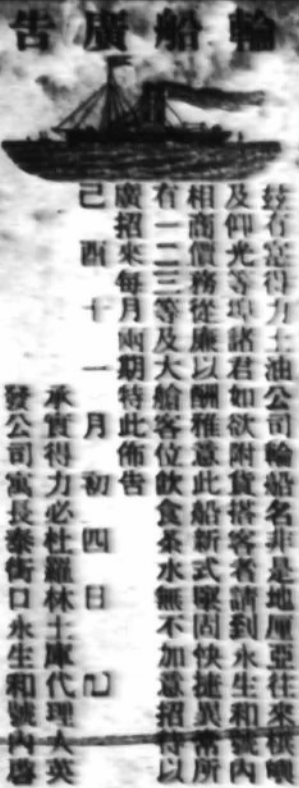 輪船廣告
茲有富得力土油公司輪船名非是地厘亞往來檳嶼
及仰光等埠諸君如欲附貨搭客者請到永生和號內
相商價務從廉以酬雅意此船新式堅固快捷異常所
有一二三等及大艙客位飲食茶水無不加意招待以
廣招來每月兩期特此佈告
己酉十一月初四日 己
承寶得力必杜羅林土庫代理人英
發公司寓長泰街口永生和號內啓